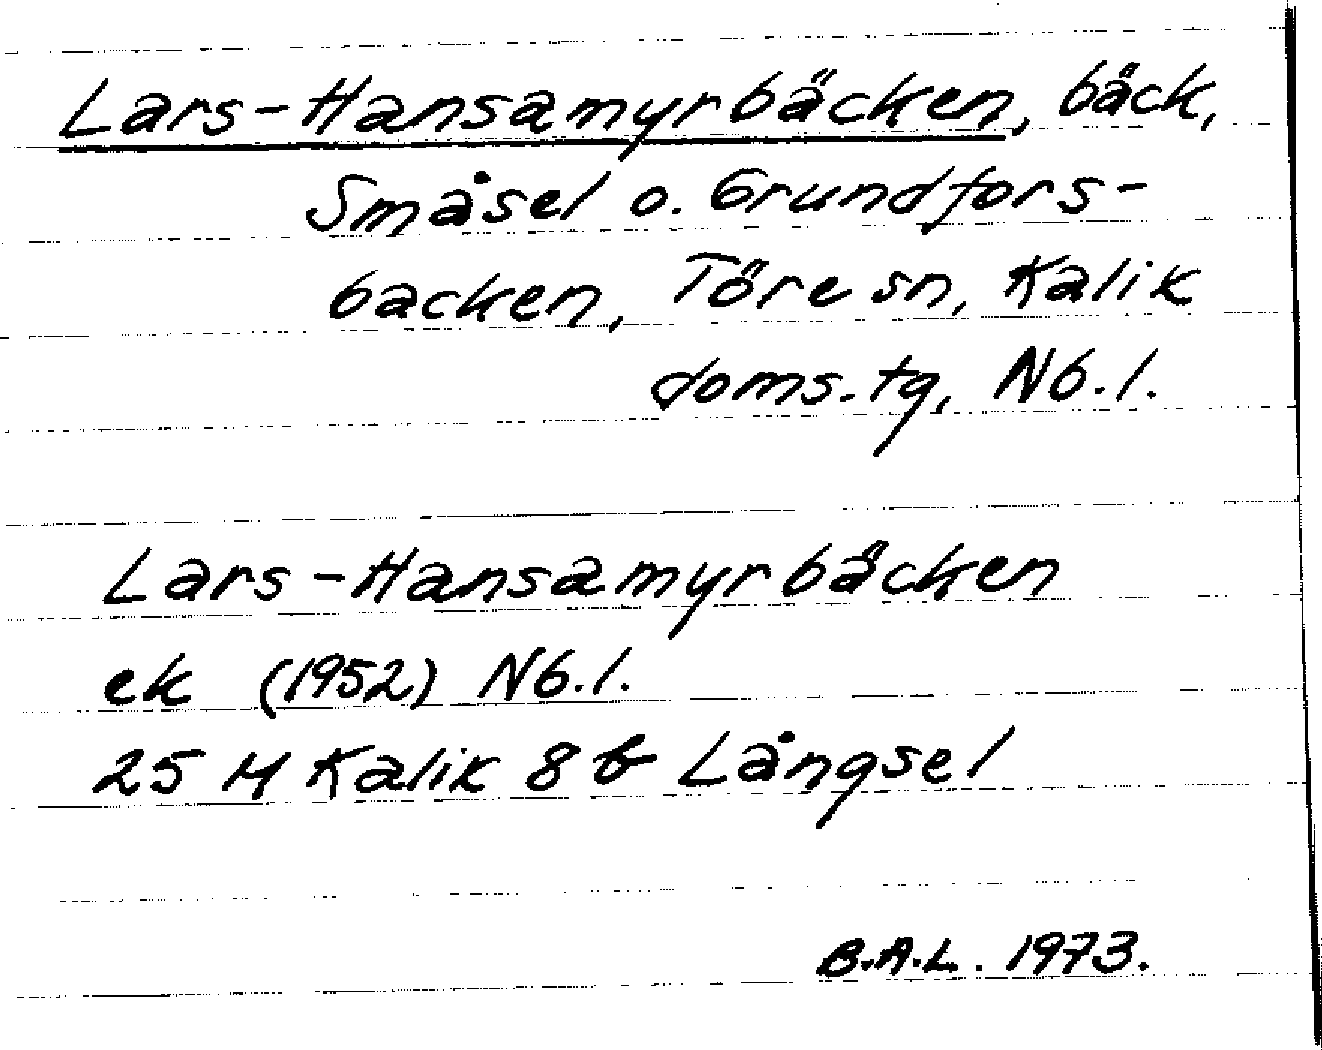 Lars-Hansamyrbäcken, bäck,
Småsel o. Grundfors-
backen, Töre sn, Kalix
doms.tg, Nb.l.
Lars-Hansamyrbäcken
ek (1952) Nb.l.
25 M Kalix 8 b Långsel
B.A.L. 1973.